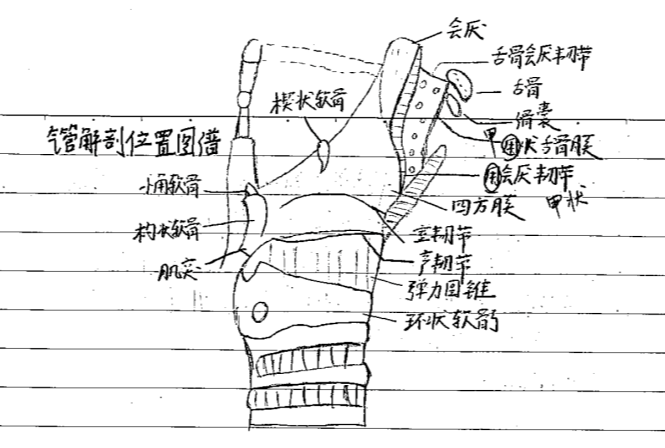 会厌
舌骨会厌韧带
舌骨
滑囊
甲状舌骨膜
会厌韧带
甲状
四方膜
室韧带
声韧带
弹力圆锥
环状软骨
楔状软骨
气管解剖位置图谱
小角软骨
杓状软骨
肌突